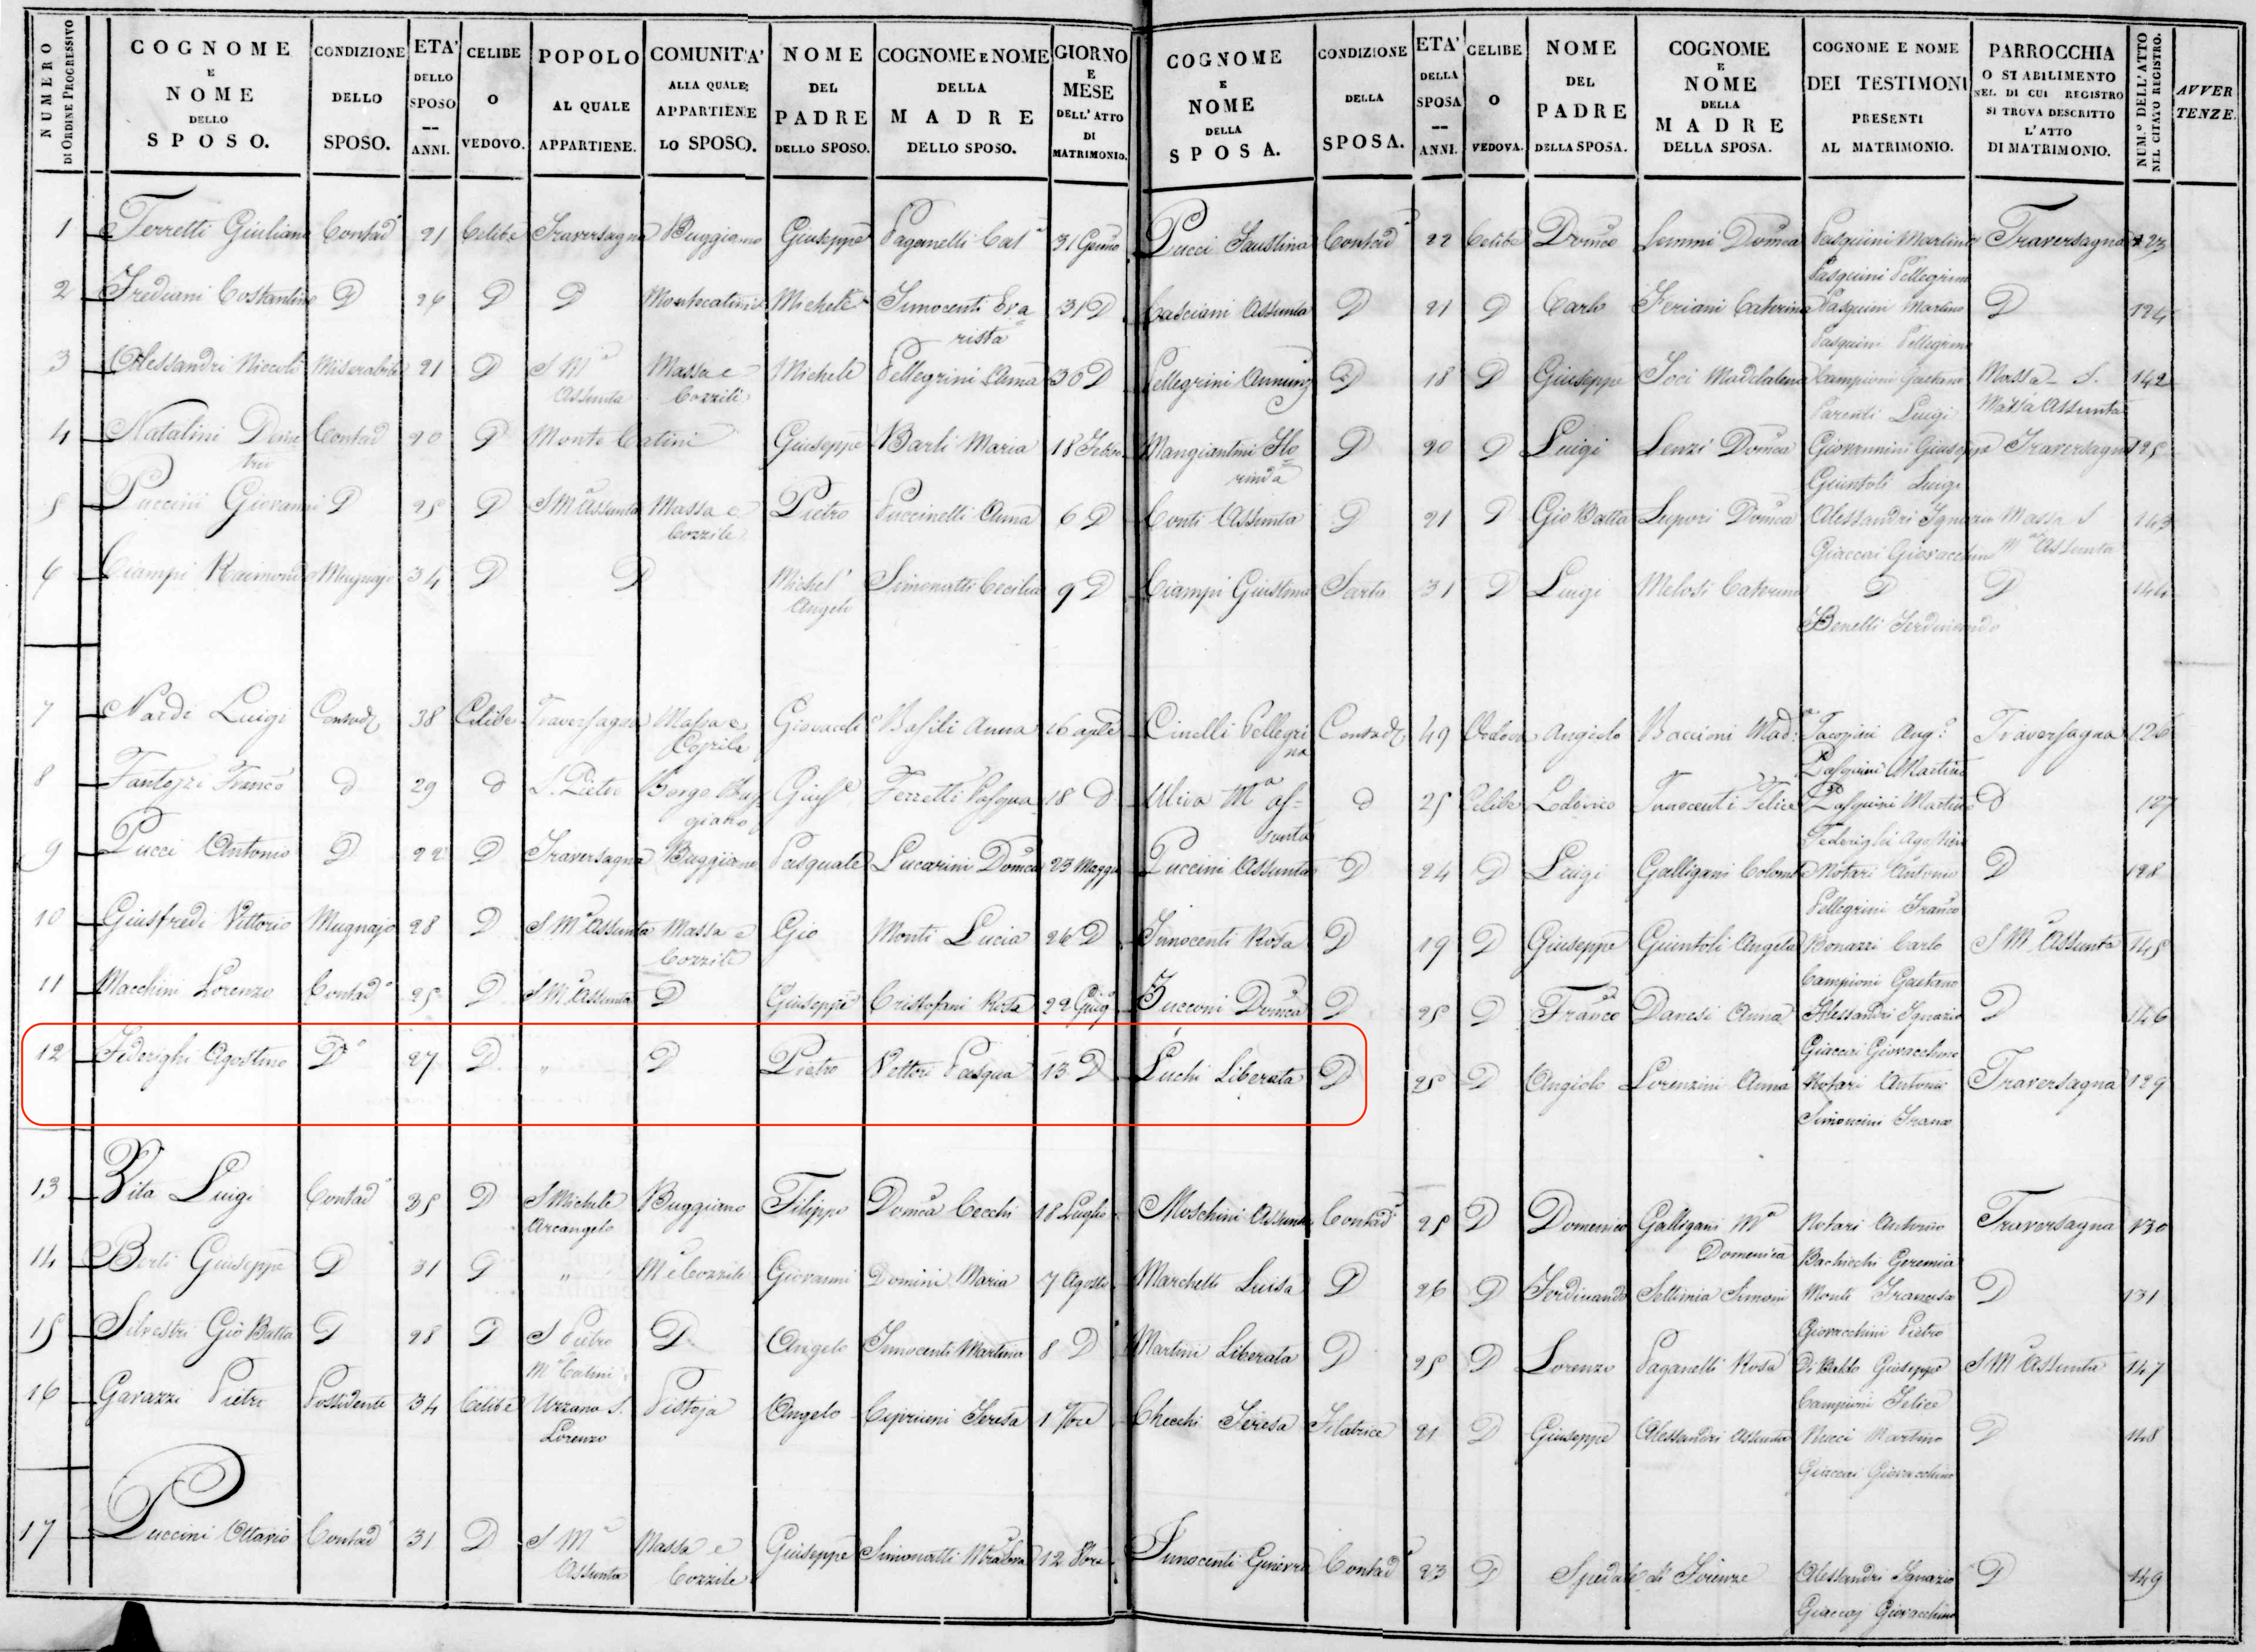 NUMERO DI ORDINE PROGRESSIVO | COGNOME E NOME DELLO SPOSO. | CONDIZIONE DELLO SPOSO. | ETA' DELLO SPOSO -- ANNI. | CELIBE O VEDOVO. | POPOLO AL QUALE APPARTIENE. | COMUNITA' ALLA QUALE APPARTIENE LO SPOSO. | NOME DEL PADRE DELLO SPOSO. | COGNOME E NOME DELLA MADRE DELLO SPOSO. | GIORNO E MESE DELL'ATTO DI MATRIMONIO. | COGNOME E NOME DELLA SPOSA. | CONDIZIONE DELLA SPOSA. | ETA' DELLA SPOSA -- ANNI. | CELIBE O VEDOVA. | NOME DEL PADRE DELLA SPOSA. | COGNOME E NOME DELLA MADRE DELLA SPOSA. | COGNOME E NOME DEI TESTIMONI PRESENTI AL MATRIMONIO. | PARROCCHIA O STABILIMENTO NEL DI CUI REGISTRO SI TROVA DESCRITTO L'ATTO DI MATRIMONIO. | NUM.º DELL'ATTO NEL CITATO REGISTRO. | AVVERTENZE.
1 Ferretti Giuliano Contad 21 Celibe Traversagna Buggiano Giuseppe Paganelli Cat.a 31 Genno Pucci Faustina Contad 22 Celibe Domco Lemmi Domca Pasquini Martino Traversagna 123
Pasquini Pellegrino
2 Frediani Costantino D 26 D D Montecatini Michele Innocenti Eva 31 D Casciani Assunta D 21 D Carlo Feriani Caterina Pasquini Martino D 124
rista Pasquini Pellegrino
3 Alessandri Niccolò Miserabile 21 D S Ma Massa e Michele Pellegrini Anna 30 D Pellegrini Annunz D 18 D Giuseppe Soci Maddalena Campioni Gaetano Massa S. 142
Assunta Cozzile Parenti Luigi Maria Assunta
4 Natalini Deme Contad 20 D Monte Catini Giuseppe Barli Maria 18 Febbo Mangiantini Flo D 20 D Luigi Lenzi Domca Giovannini Giuseppe Traversagna 125
trio rinda Giuntoli Luigi
5 Puccini Giovanni D 25 D S Ma Assunta Massa e Pietro Puccinelli Anna 6 D Conti Assunta D 21 D Gio Batta Lupori Domca Alessandri Ignazio Massa S 143
Cozzile Giaccai Giovacchino Ma Assunta
6 Ciampi Raimondo Mugnajo 34 D D Michel Simonatti Cecilia 9 D Ciampi Giustina Sarta 31 D Luigi Melosi Caterina D D 144
Angelo Benelli Ferdinando
7 Nardi Luigi Contad 38 Celibe Traversagna Massa e Giovacch Basili Anna 16 aple Cinelli Pellegri Contad 49 Vedova Angiolo Baccioni Mad. Jacopini Ang. Traversagna 126
Cozzile na Pasquini Martino
8 Fantozzi Franco D 29 D S. Pietro Borgo Bug Giuse Ferretti Pasqua 18 D Uliva Ma As= D 25 Celibe Lodovico Innocenti Felice Pasquini Martino D 127
giano sunta Federighi Agostino
9 Pucci Antonio D 22 D Traversagna Buggiano Pasquale Lucarini Domca 23 Maggo Puccini Assunta D 24 D Luigi Galligani Colomba Notari Antonio D 128
Pellegrini Franco
10 Giusfredi Vittorio Mugnajo 28 D S Ma Assunta Massa e Gio Monti Lucia 26 D Innocenti Rosa D 19 D Giuseppe Giuntoli Angela Bonazzi Carlo S M Assunta 145
Cozzile Campioni Gaetano
11 Macchini Lorenzo Contado 25 D S Ma Assunta D Giuseppe Cristofani Rosa 22 Giugo Zucconi Domca D 25 D Franco Danesi Anna Alessandri Ignazio D 146
Giaccai Giovacchino
12 Federighi Agostino D 27 D " D Pietro Vettori Pasqua 13 D Luchi Liberata D 25 D Angiolo Lorenzini Anna Notari Antonio Traversagna 129
Simoncini Franco
13 Vita Luigi Contad 35 D S Michele Buggiano Filippo Domca Cecchi 18 Luglio Moschini Assunta Contad 25 D Domenico Galligani Ma Notari Antonio Traversagna 130
Arcangelo Domenica Bachecchi Geremia
14 Berti Giuseppe D 31 D " M e Cozzile Giovanni Domini Maria 7 Agosto Marchetti Luisa D 26 D Ferdinando Settimia Simoni Monti Francesco D 131
Giovacchini Pietro
15 Silvestri Gio Batta D 28 D S Pietro D Angelo Innocenti Martina 8 D Martini Liberata D 25 D Lorenzo Paganelli Rosa Di Baldo Giuseppe S M Assunta 147
M Catini Campioni Felice
16 Gavazzi Pietro Possidente 34 Celibe Uzzano S. Pistoja Angelo Cipriani Teresa 1 7bre Checchi Teresa Filatrice 21 D Giuseppe Alessandri Assunta Nucci Martino D 148
Lorenzo Giaccai Giovacchino
17 Puccini Ottavio Contad 31 D S Ma Massa e Giuseppe Simonatti 12 Innocenti Ginevra Contad 23 D Spedale di Firenze Alessandri Ignazio D 149
Assunta Cozzile Giaccaj Giovacchino